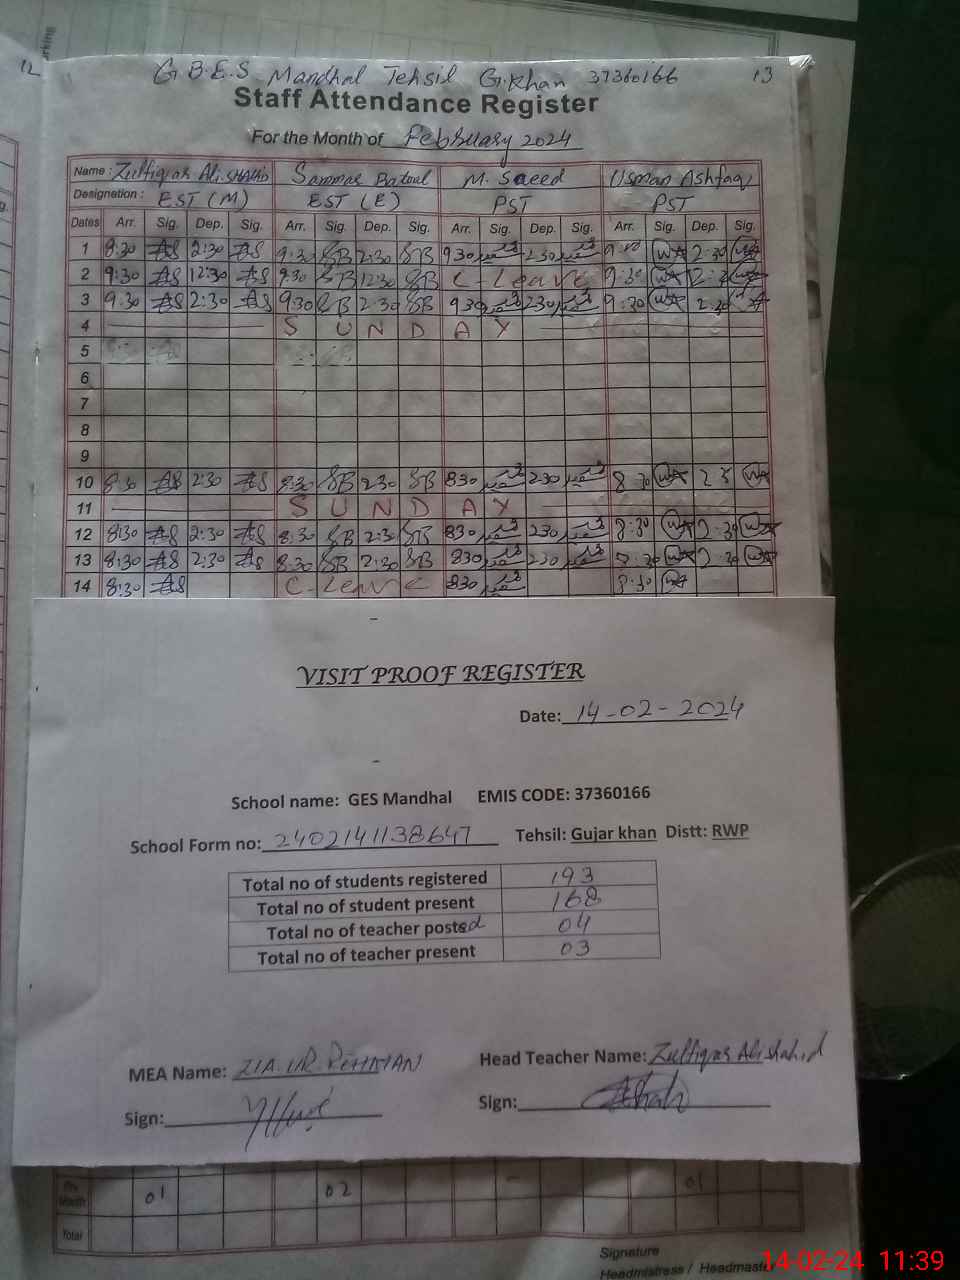 12
G.B.E.S Mandhal Tehsil G.Khan 37360166 13
Staff Attendance Register
For the Month of February 2024
Name : Zulfiqar Ali Shahid Sammar Batool M. Saeed Usman Ashfaq
Designation : EST (M) EST (E) PST PST
Dates Arr. Sig. Dep. Sig. Arr. Sig. Dep. Sig. Arr. Sig. Dep. Sig. Arr. Sig. Dep. Sig.
1 8:30 AS 2:30 AS 9:30 SB 2:30 SB 930 230 WA 2:30 WA
2 9:30 AS 12:30 AS 9:30 SB 12:30 SB C-Leave 9:30 WA WA
3 9:30 AS 2:30 AS 9:30 SB 2:30 SB 930 230 9:30 WA 2:30
4 SUNDAY
5
6
7
8
9
10 8:30 AS 2:30 AS 8:30 SB 2:30 SB 830 230 8:30 WA WA
11 SUNDAY
12 8:30 AS 2:30 AS 8:30 SB 2:30 SB 830 230 8:30 WA 2:30 WA
13 8:30 AS 2:30 AS 8:30 SB 2:30 SB 830 230 8:30 WA 2:30 WA
14 8:30 AS C-Leave 830 8:30 WA
VISIT PROOF REGISTER
Date: 14-02-2024
School name: GES Mandhal EMIS CODE: 37360166
School Form no: 2402141138647 Tehsil: Gujar khan Distt: RWP
Total no of students registered 193
Total no of student present 168
Total no of teacher posted 04
Total no of teacher present 03
MEA Name: ZIA UR REHMAN Head Teacher Name: Zulfiqar Ali Shahid
Sign: Sign:
Month 01 02 - 01
Total
Signature
Headmistress / Headmaster
14-02-24 11:39